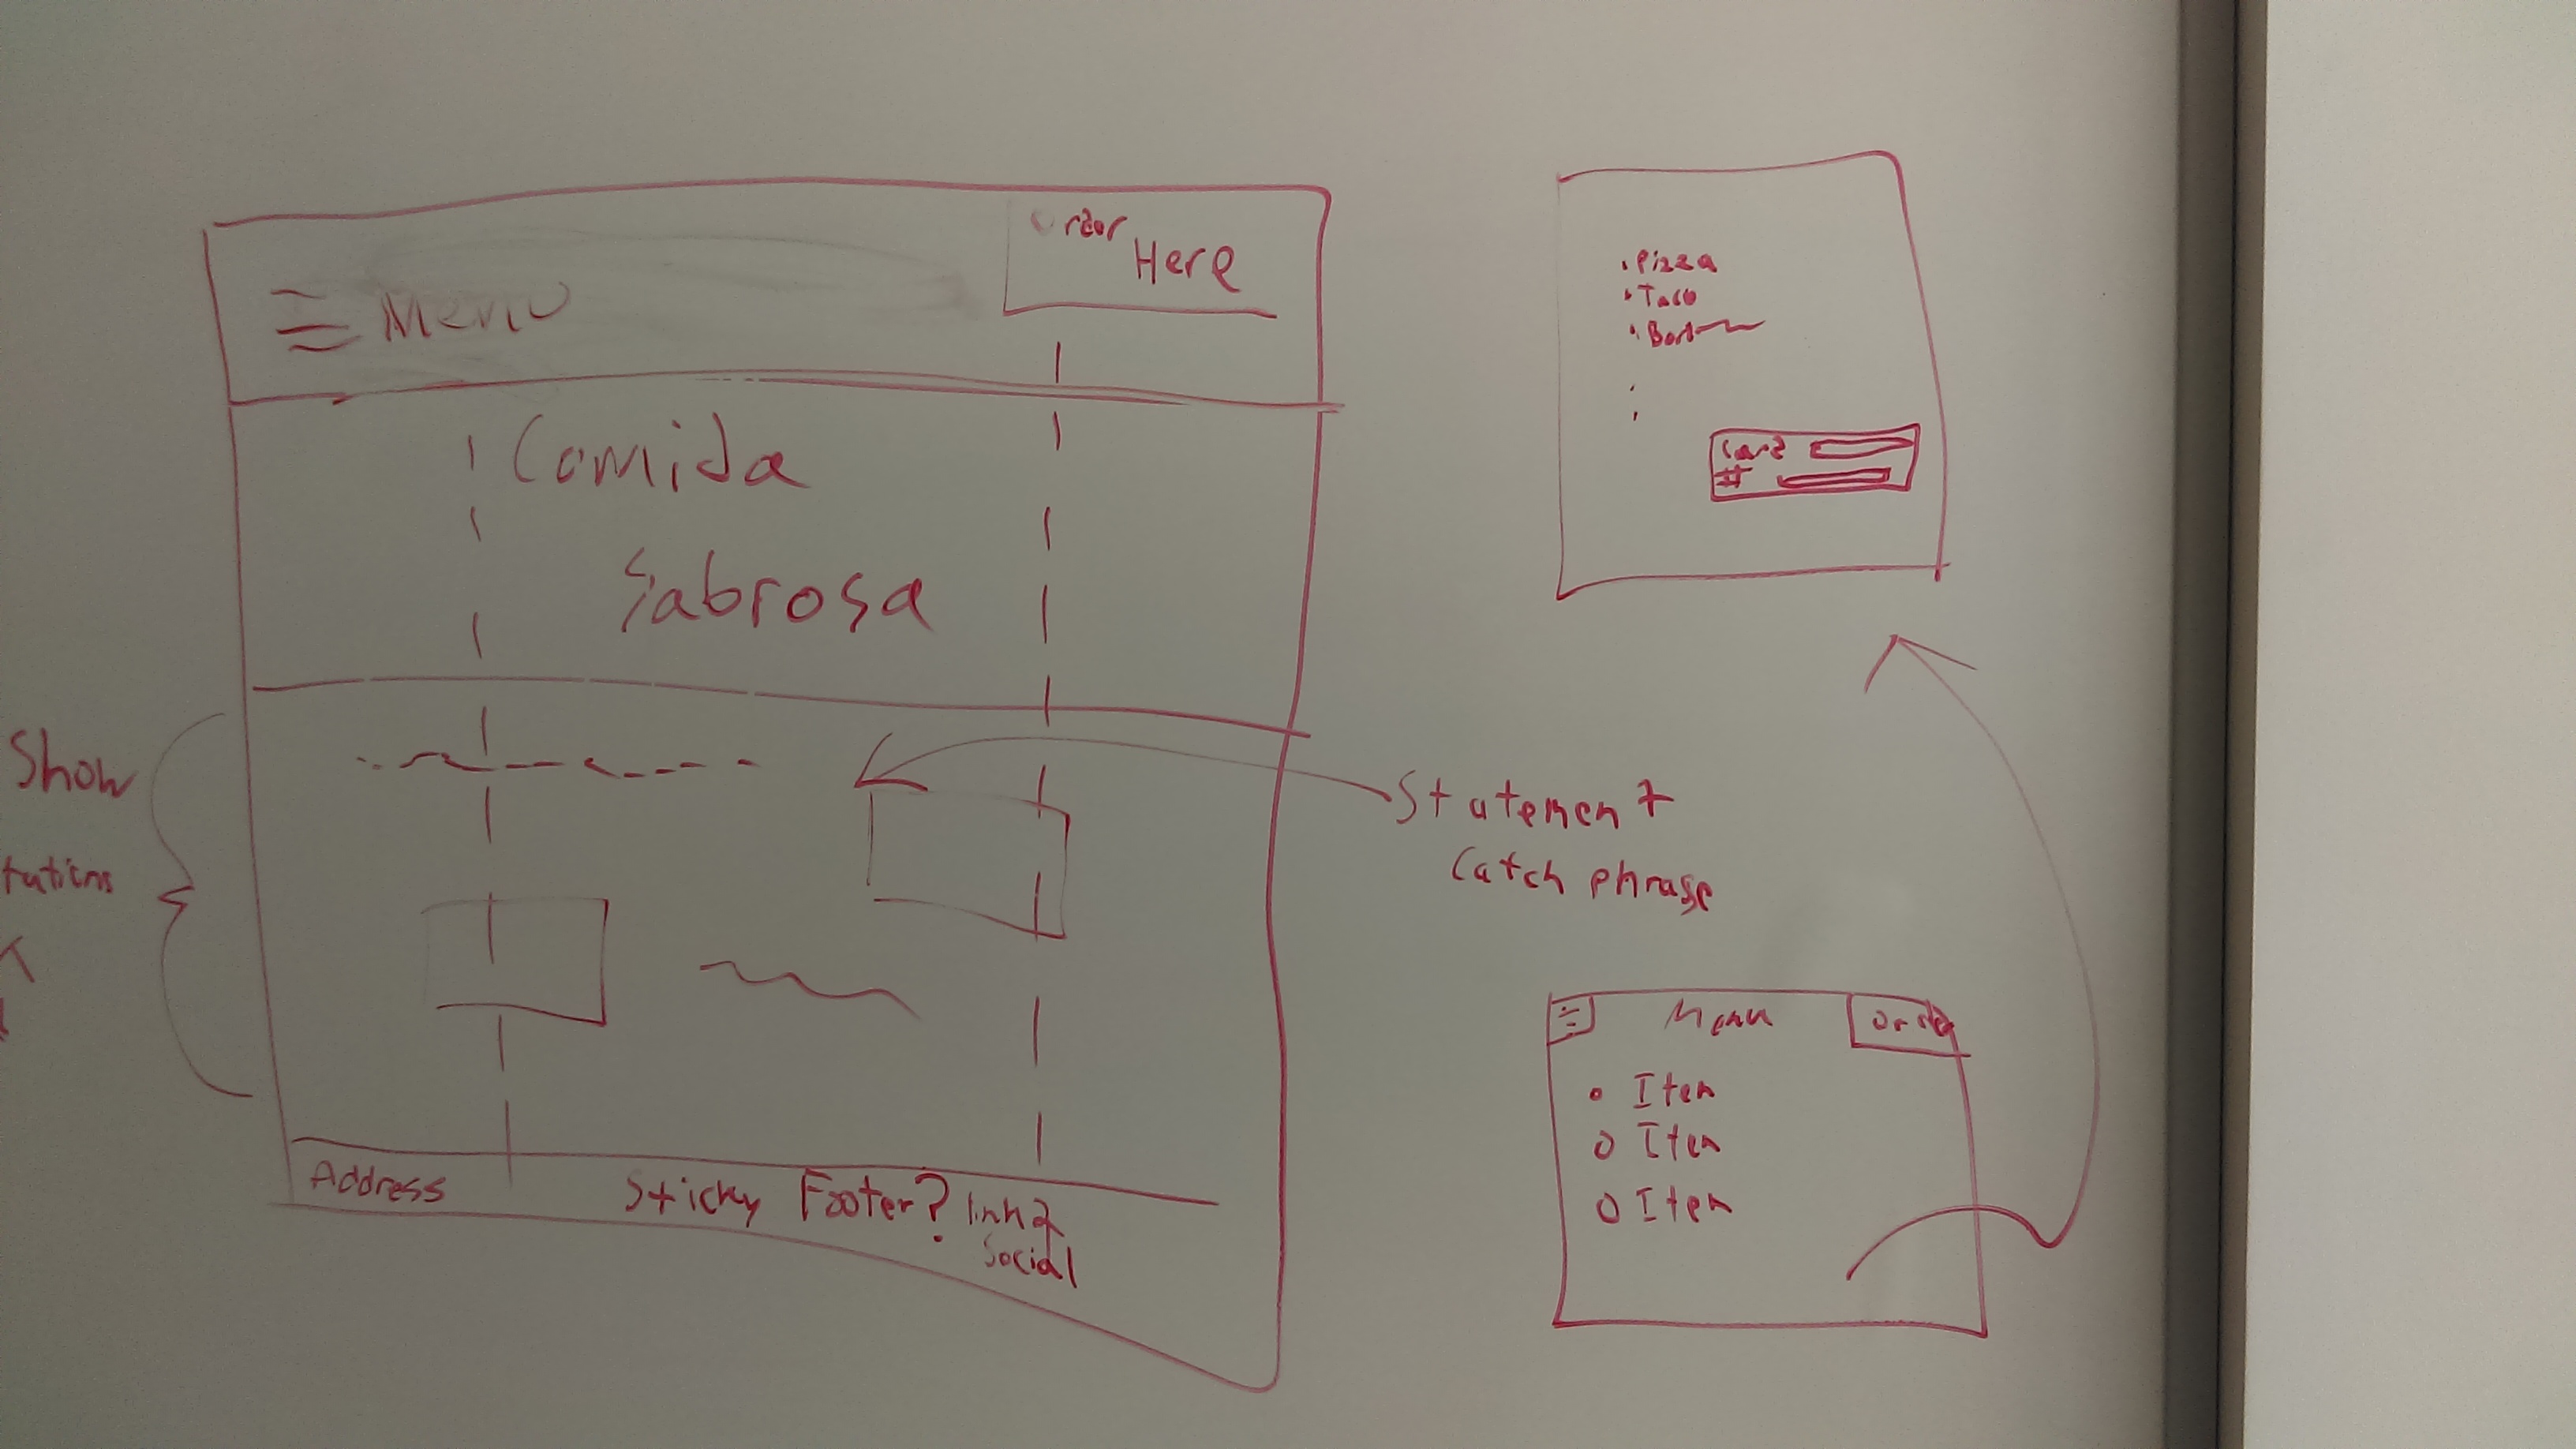 Order
Here
Menu
Comida
Sabrosa
Show
Statement
Catch phrase
Address
Sticky Footer?
link 2
Social
• Pizza
• Taco
Card
#
Menu
Order
Item
Item
Item